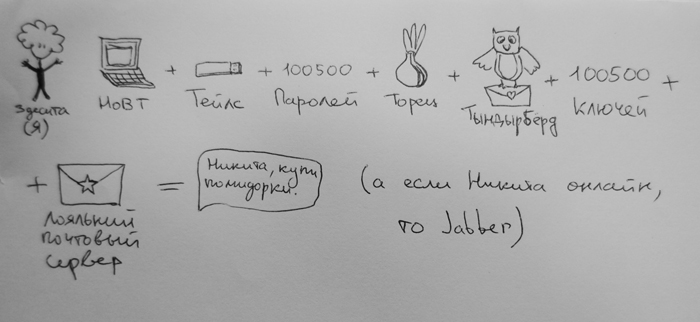 Здесита
(я)
НоВТ
+
Тейлс
+ 100500
Паролей
+
Торец
+
Тындырбёрд
+ 100500
Ключей
+
+
Лояльный
почтовый
сервер
=
Никита, купи
помидорки.
(а если Никита онлайн,
то Jabber)